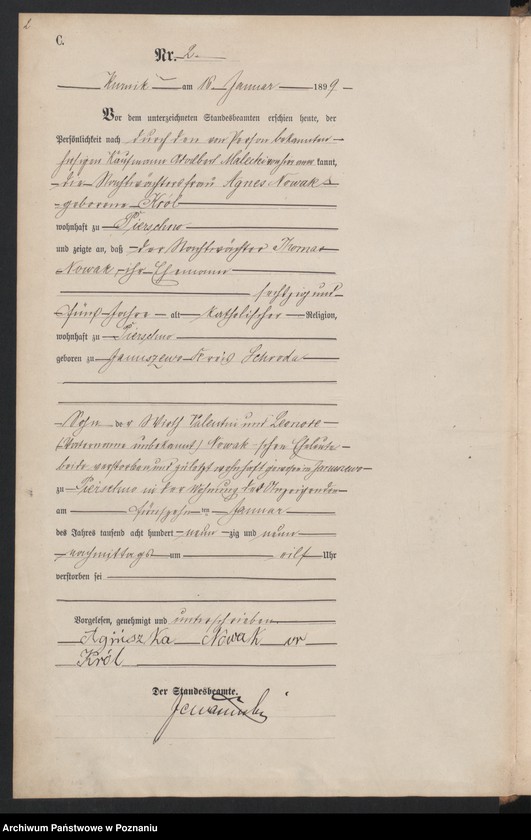 2
C.
Nr. 2.
Kurnik am 18. Januar 1899
Vor dem unterzeichneten Standesbeamten erschien heute, der
Persönlichkeit nach durch den von Person bekannten
hiesigen Kaufmann Adalbert Malecki kannt,
die Nachtwächtersfrau Agnes Nowak
geborene Król
wohnhaft zu Pierschno
und zeigte an, daß der Nachtwächter Thomas
Nowak, ihr Ehemann
sechzig und
fünf Jahre alt, katholischer Religion,
wohnhaft zu Pierschno
geboren zu Januszewo Kreis Schroda
Sohn der Wirth Valentin und Leonore
(Vatername unbekannt) Nowak-schen Eheleute
beide verstorben und zuletzt wohnhaft gewesen in Januszewo
zu Pierschno in der Wohnung des Anzeigenden
am fünfzehn ten Januar
des Jahres tausend acht hundert neun zig und neun
nachmittags um eilf Uhr
verstorben sei
Vorgelesen, genehmigt und unterschrieben
Agnuszka Nowak
Król
Der Standesbeamte.
Archiwum Państwowe w Poznaniu